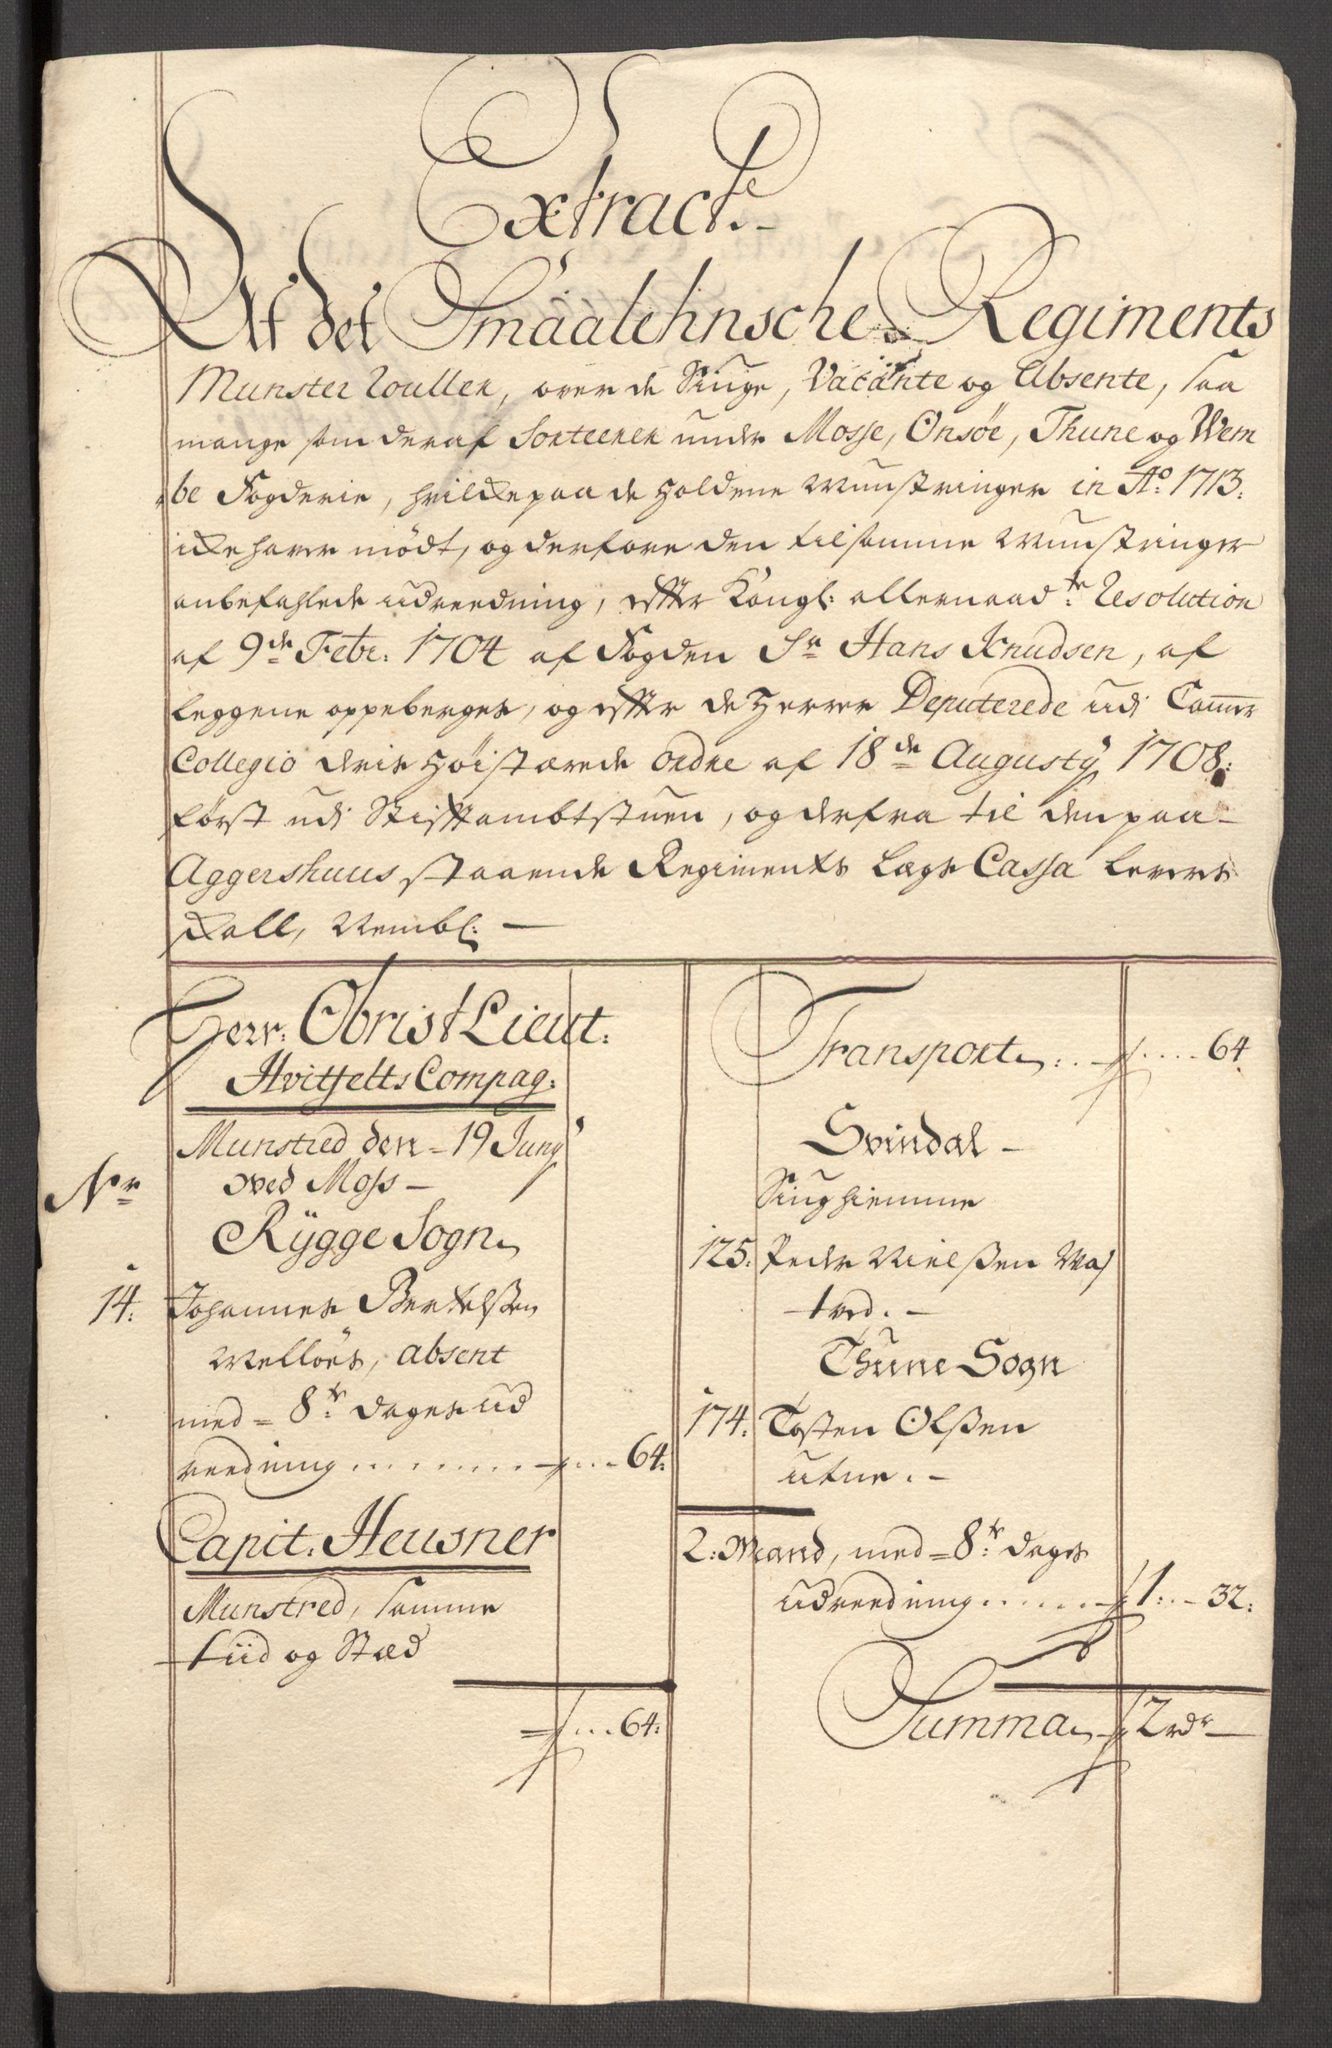 Extract
Af det Smaalehnsche Regiments
Munster Roullen, over de Siuge, Vacante og Absente, saa
mange som deraf Sorteerer under Mosse, Onsöe, Thune og Wem
be Fogderie, hvilke paa de holdene Munstringer in Ao. 1713.
icke haver mödt, og derfore den til samme Munstringer
anbefahlede udreedning, efter Kongl: allernaadste Resolution
af 9de Febr: 1704 af Fogden Sr Hans Knudsen, af
Leggene oppeberges, og efter de Herrer Deputerede udi Camer
Collegio deris Höistærede Ordre af 18de Augusty 1708:
först udi Stiftambtstuen, og derfra til den paa
Aggershuus staaende Regiments Lægs Cassa leveris
skall, Nembl: —
Herr: Obrist Lieut:
Hvitfelts Compag:
Munstred den 19 Juny
ved Moss —
Nr
Rÿgge Sogn
14. Johannes Bertelßen
Melløes, absent
med 8te dages ud
reedning . . . . . . . 64:
Capit: Heusner
Munstred, samme
tiid og Stæd
. . . 64:
Transport . . . . . 64
Svindal —
Siug hiemme
125. Peder Nielßen
Thune Sogn
174. Tosten Olßen
2: Mand, med 8te dages
udreedning . . . . . . 1: - 32:
Summa 2 rdr